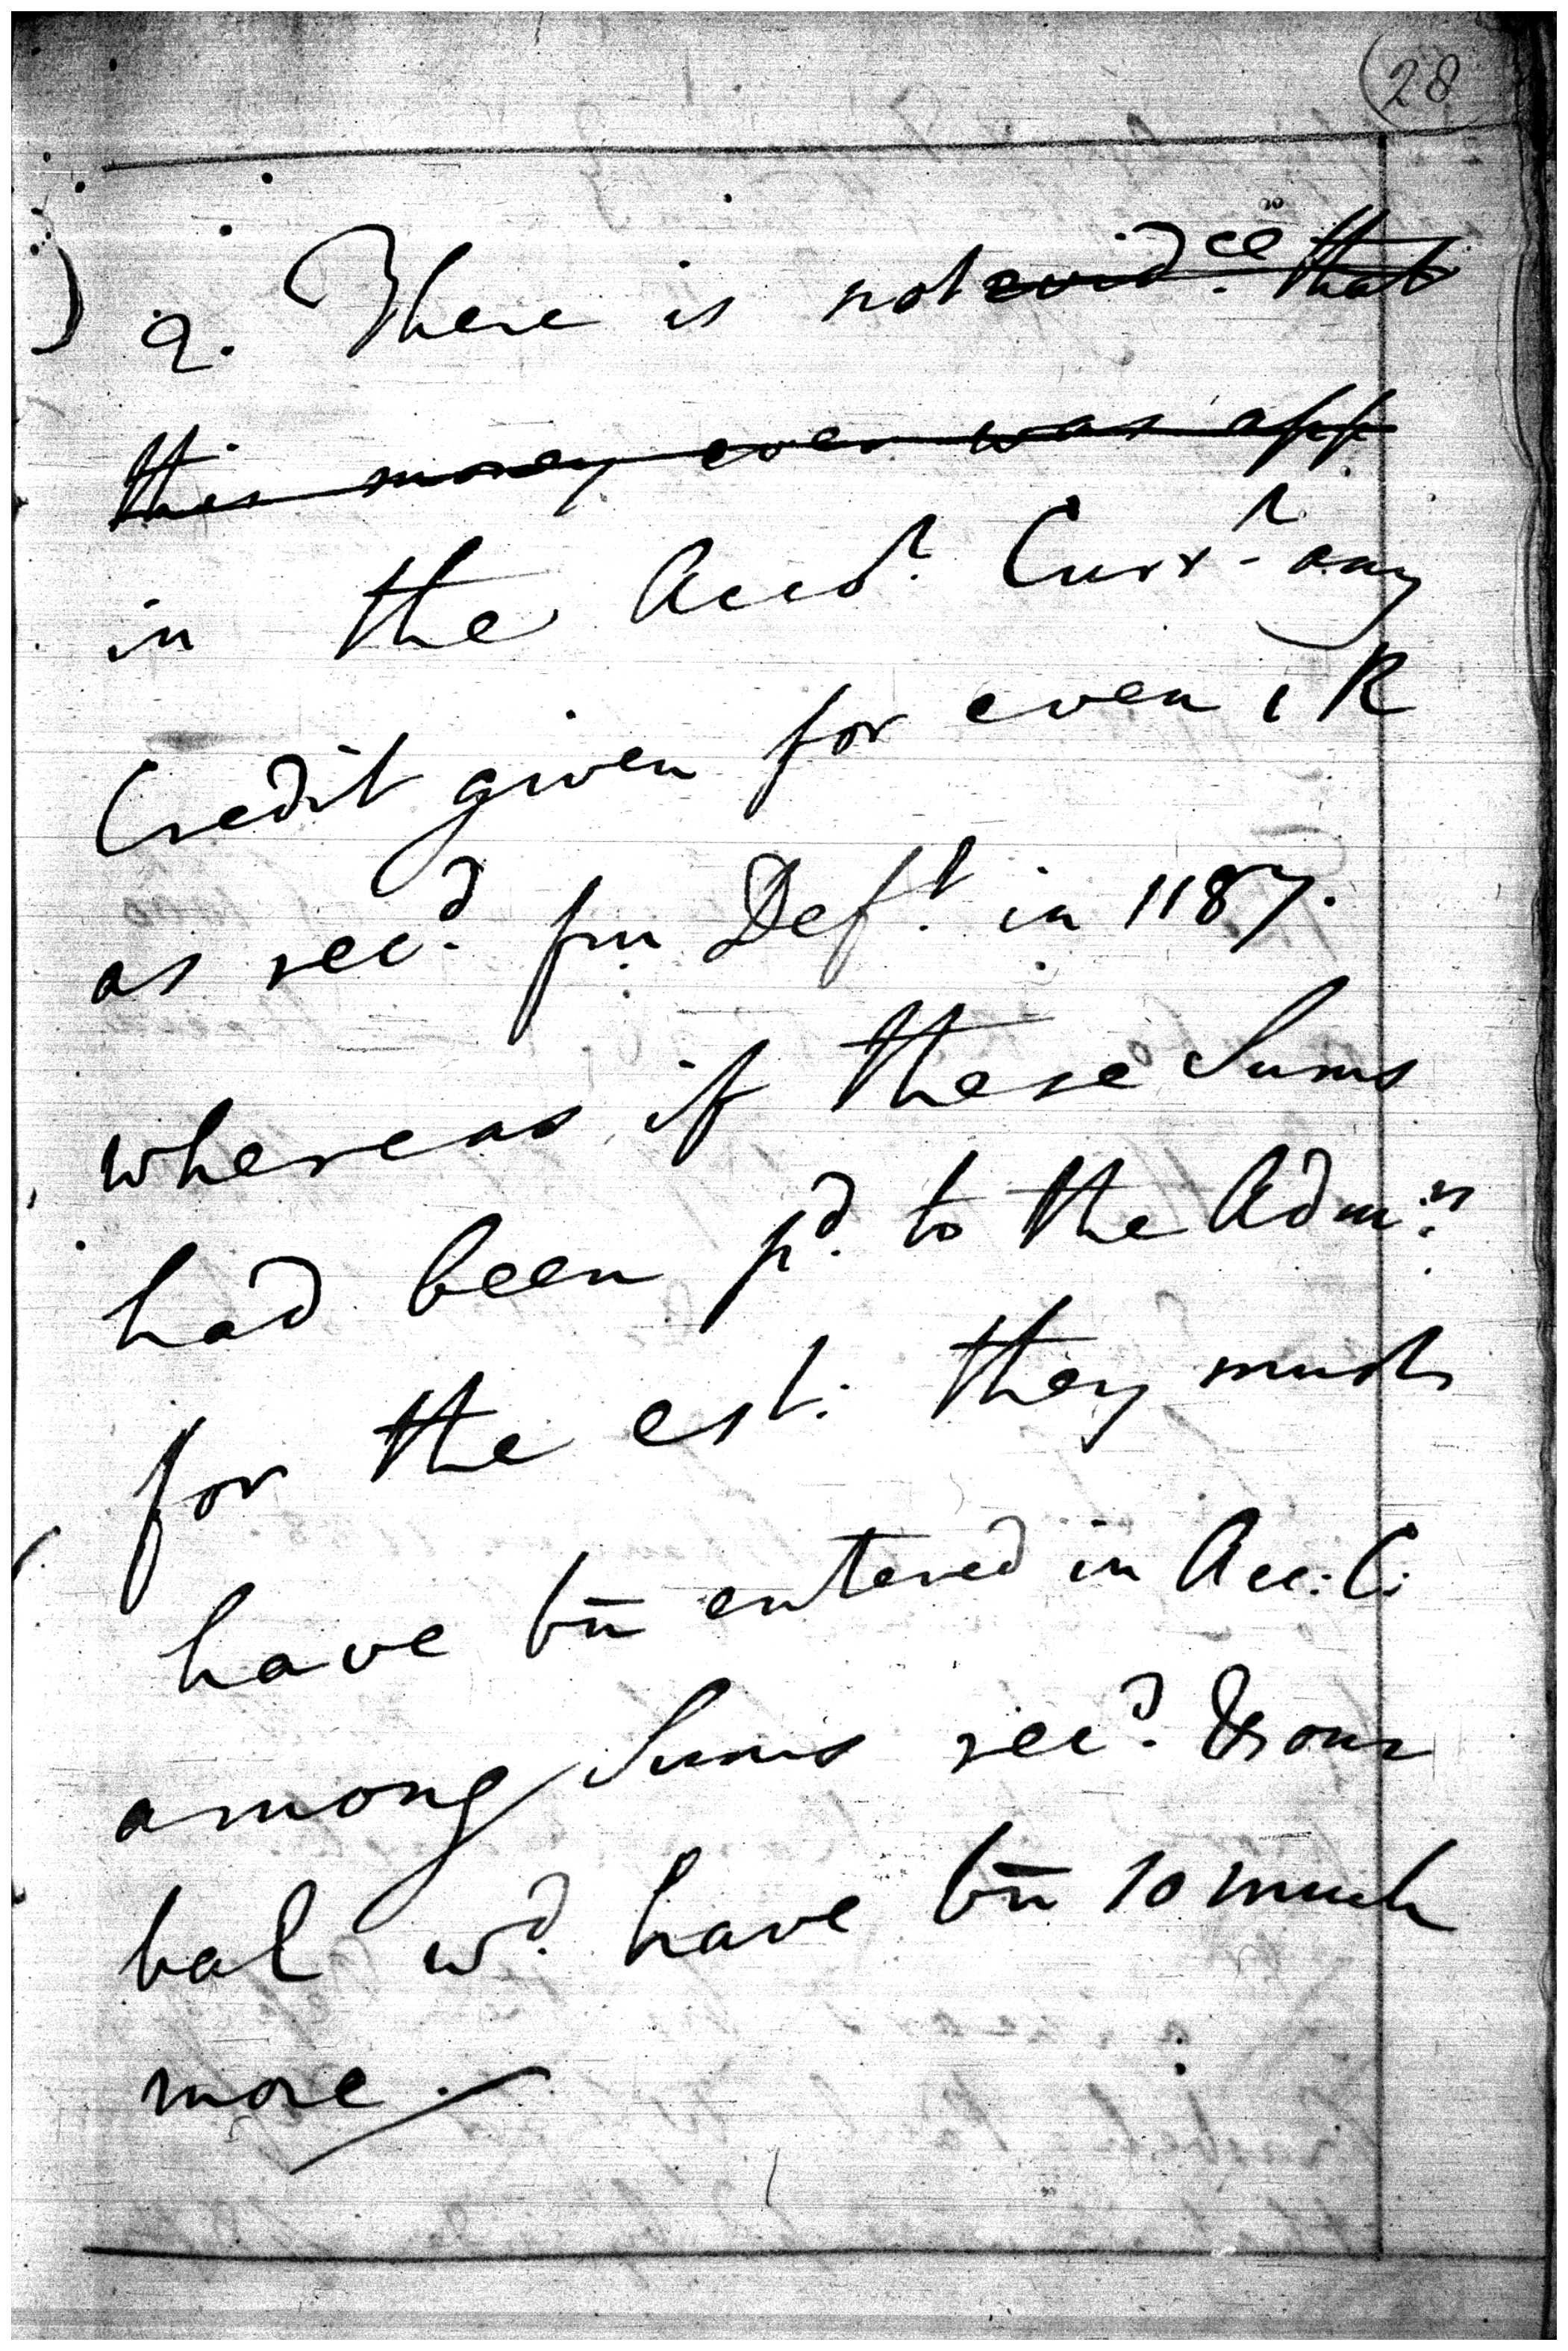 28
2. There is not evid.ce that
this money ever was app
in the Acct. Currt. any
Credit given for even 1 R
as recd. fm Deft. in 1187.
whereas if these Sums
had been pd. to the Admrs.
for the est: they must
have bn̄ entered in Acc: C:
among Sums recd. & our
bal wd. have bn̄ so much
more.